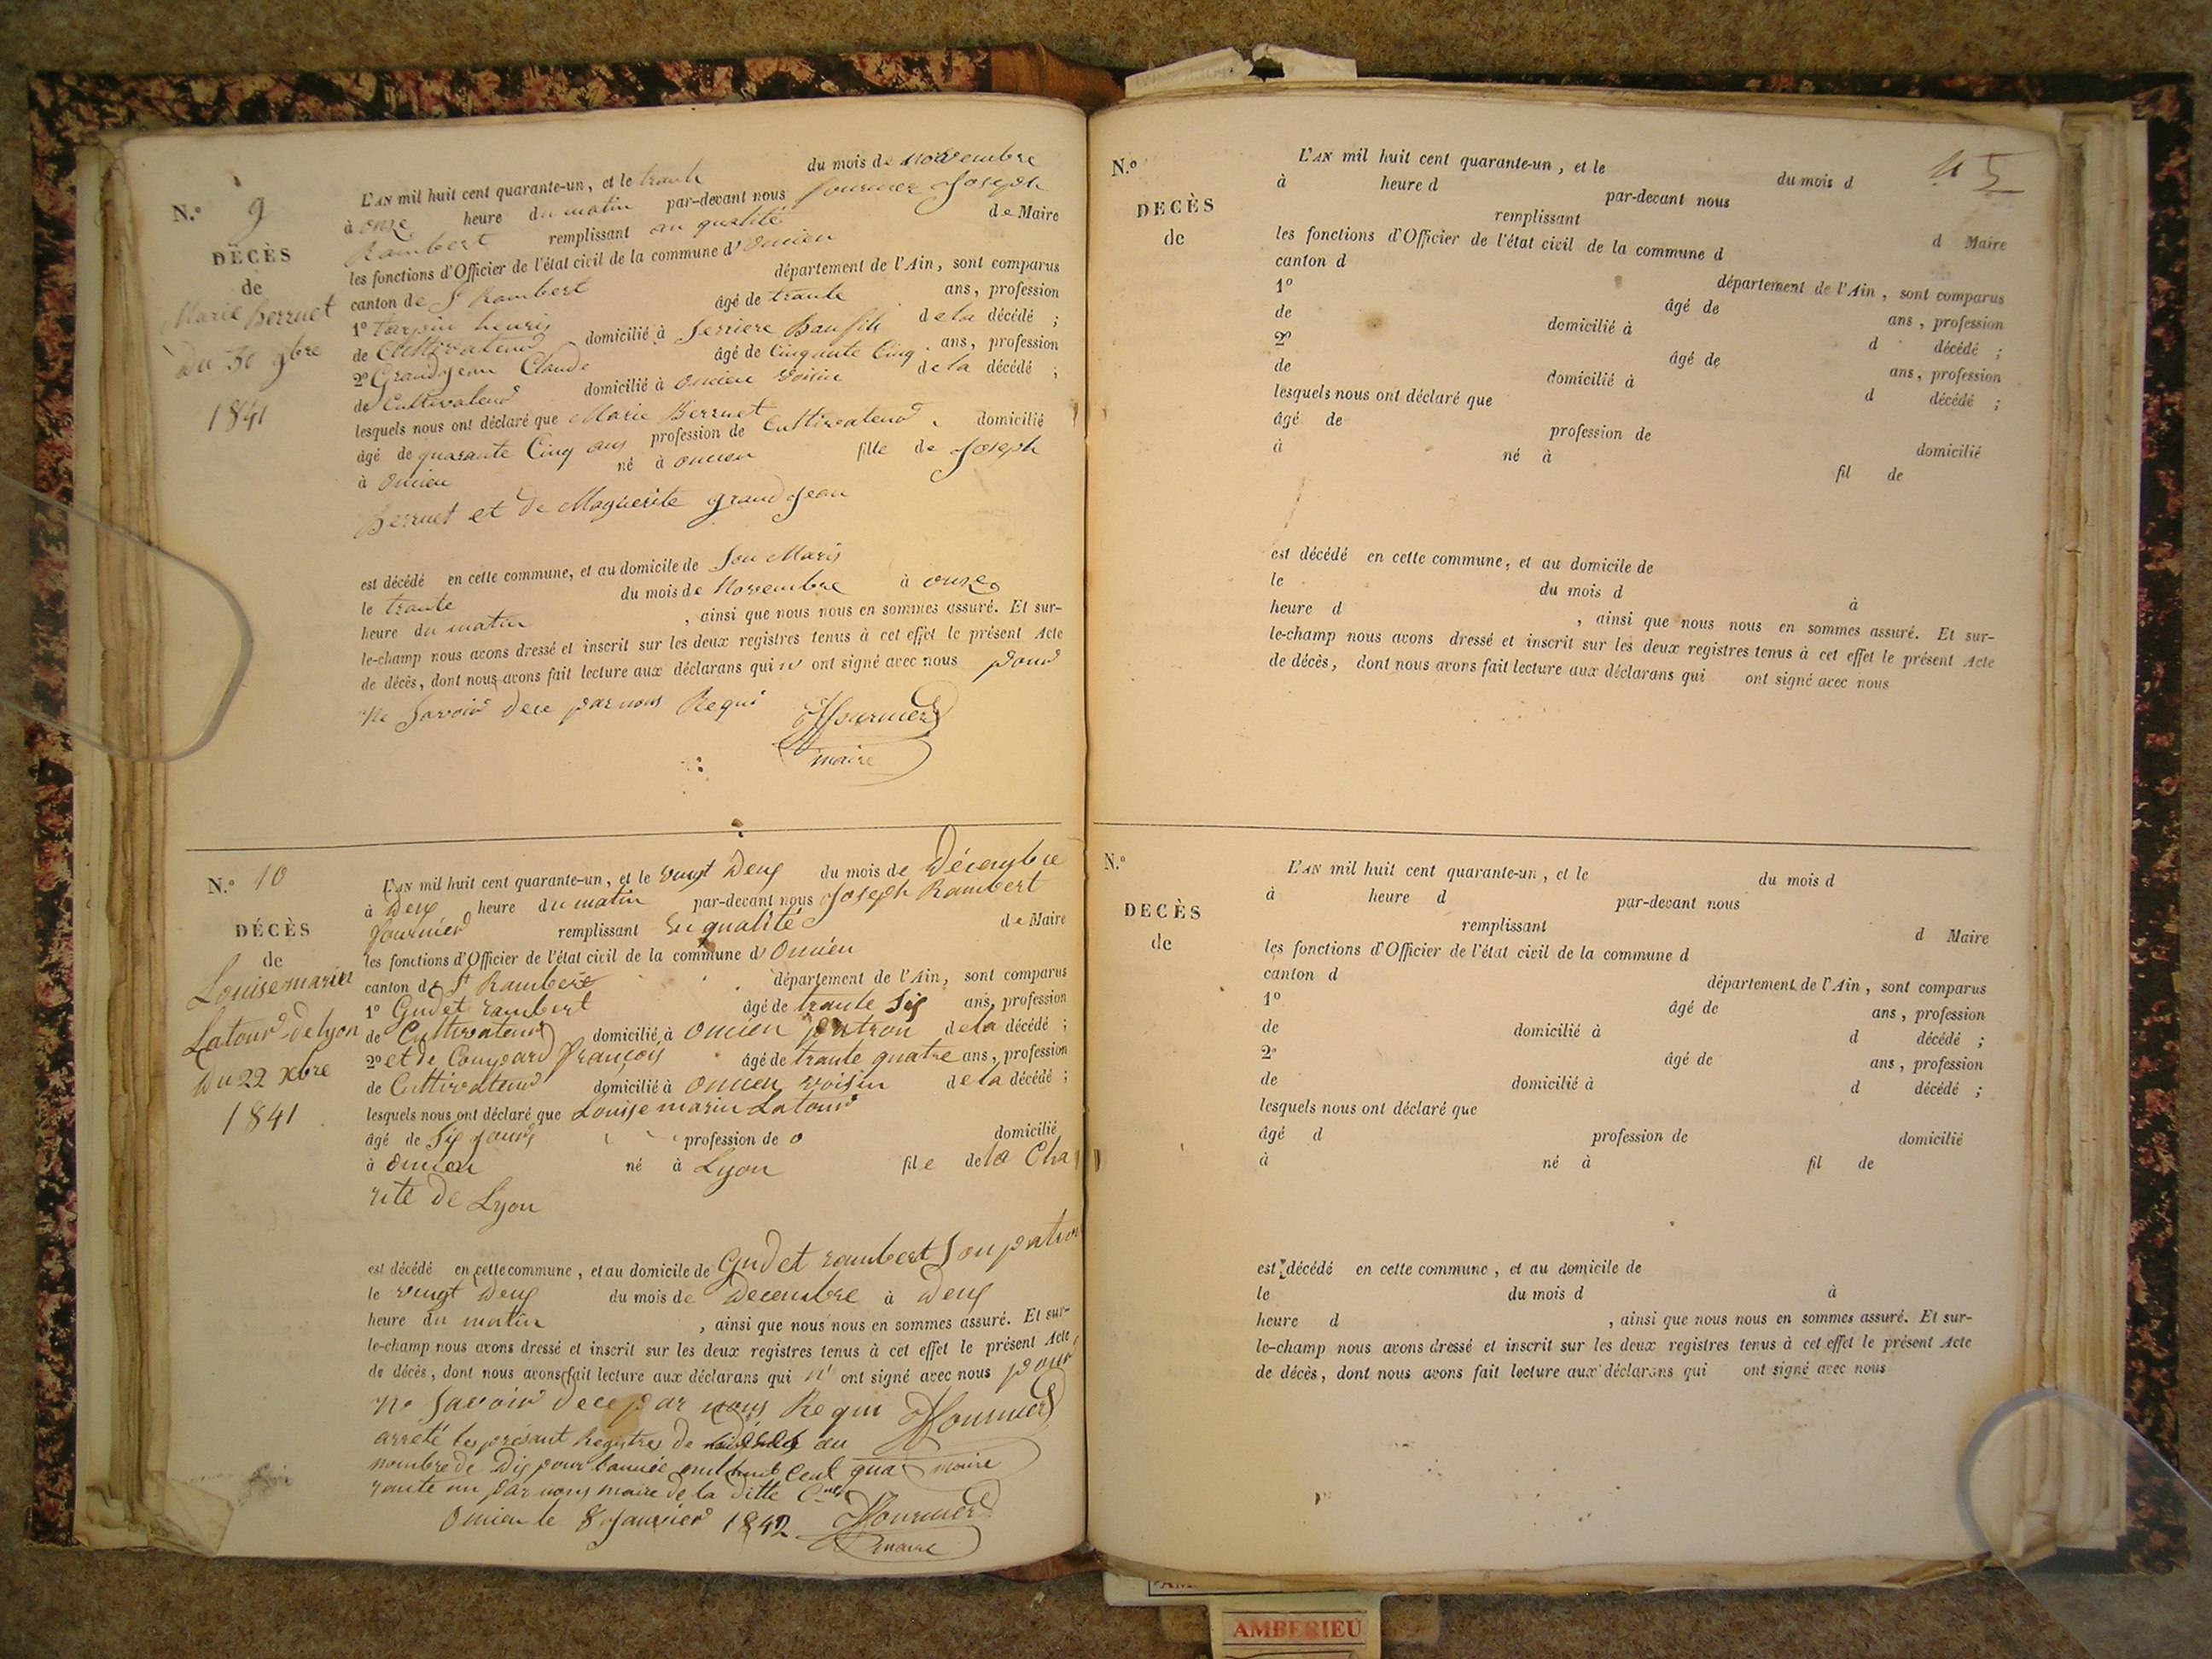 N.º 9
DÉCÈS
de
Marie Berruet
Du 30 9bre
1841
L'AN mil huit cent quarante-un, et le trante du mois de novembre
à onze heure du matin par-devant nous fournier Joseph
Rambert remplissant au qualité de Maire
les fonctions d'Officier de l'état civil de la commune d'Oncieu
canton de St Rambert département de l'Ain, sont comparus
1º henris âgé de trante ans, profession
de Cultivateur domicilié à Serriere Baufils de la décédé ;
2º Grandjean Claude âgé de Cinquante Cinq ans, profession
de Cultivateur domicilié à oncieu voisin de la décédé ;
lesquels nous ont déclaré que Marie Berruet
âgé de quarante Cinq ans profession de Cultivateur domicilié
à Oncieu né à oncieu fille de Joseph
Berruet et de Maguerite grandjean
est décédé en cette commune, et au domicile de Son Maris
le trante du mois de Novembre à onze
heure du matin, ainsi que nous nous en sommes assuré. Et sur-
le-champ nous avons dressé et inscrit sur les deux registres tenus à cet effet le présent Acte
de décès, dont nous avons fait lecture aux déclarans qui n' ont signé avec nous pour
ne Savoir dece par nous Requi
Fournier
maire
N.º 10
DÉCÈS
de
Louise marie
Latour de lyon
Du 22 xbre
1841
L'AN mil huit cent quarante-un, et le vingt Deux du mois de Décembre
à Deux heure du matin par-devant nous Joseph Rambert
fournier remplissant En qualité de Maire
les fonctions d'Officier de l'état civil de la commune d'Oncieu
canton de St Rambert département de l'Ain, sont comparus
1º Gudet rambert âgé de trante Six ans, profession
de Cultivateur domicilié à Oncieu patron de la décédé ;
2º et de François âgé de trante quatre ans, profession
de Cultivateur domicilié à Oncieu voisin de la décédé ;
lesquels nous ont déclaré que Louise marie Latour
âgé de Six jours profession de o domicilié
à oncieu né à Lyon file de la Cha
rité de Lyon
est décédé en cette commune, et au domicile de Gudet rambert Son patron
le vingt Deux du mois de Decembre à Deux
heure du matin, ainsi que nous nous en sommes assuré. Et sur-
le-champ nous avons dressé et inscrit sur les deux registres tenus à cet effet le présent Acte
de décès, dont nous avons fait lecture aux déclarans qui n' ont signé avec nous pour
ne Savoir dece par nous Requi Fournier
arreté les présant Registres de au
nombre de Dix pour l'année mil huit Cent qua maire
rante un par nous maire de la ditte Cne
Oncieu le 8 Janvier 1842 Fournier
maire
45
N.º
DÉCÈS
de
L'AN mil huit cent quarante-un, et le du mois d
à heure d par-devant nous
remplissant d Maire
les fonctions d'Officier de l'état civil de la commune d
canton d département de l'Ain, sont comparus
1º âgé de ans, profession
de domicilié à d décédé ;
2º âgé de ans, profession
de domicilié à d décédé ;
lesquels nous ont déclaré que
âgé de profession de domicilié
à né à fil de
est décédé en cette commune, et au domicile de
le du mois d à
heure d , ainsi que nous nous en sommes assuré. Et sur-
le-champ nous avons dressé et inscrit sur les deux registres tenus à cet effet le présent Acte
de décès, dont nous avons fait lecture aux déclarans qui ont signé avec nous
N.º
DECÈS
de
L'AN mil huit cent quarante-un, et le du mois d
à heure d par-devant nous
remplissant d Maire
les fonctions d'Officier de l'état civil de la commune d
canton d département de l'Ain, sont comparus
1º âgé de ans, profession
de domicilié à d décédé ;
2º âgé de ans, profession
de domicilié à d décédé ;
lesquels nous ont déclaré que
âgé d profession de domicilié
à né à fil de
est décédé en cette commune, et au domicile de
le du mois d à
heure d , ainsi que nous nous en sommes assuré. Et sur-
le-champ nous avons dressé et inscrit sur les deux registres tenus à cet effet le présent Acte
de décès, dont nous avons fait lecture aux déclarans qui ont signé avec nous
AMBERIEU